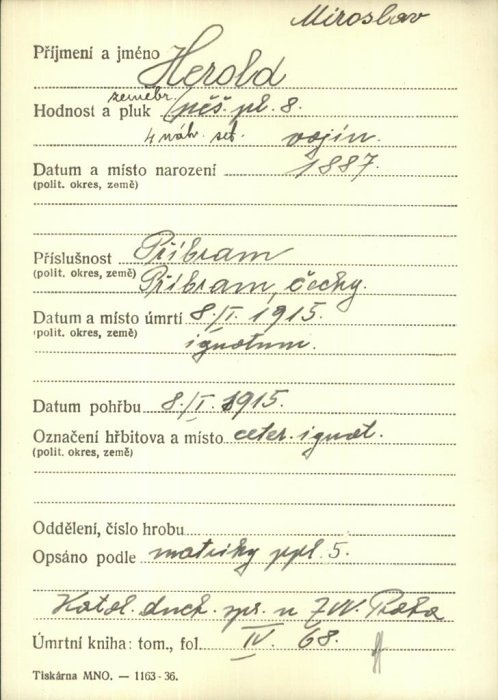 Miroslav
Příjmení a jméno Herold
zeměbr.
Hodnost a pluk pěš. pl. 8.
4 náh. set. vojín.
Datum a místo narození 1887.
(polit. okres, země)
Příslušnost Příbram
(polit. okres, země) Příbram, Čechy.
Datum a místo úmrtí 8./I. 1915.
(polit. okres, země)
ignotum.
Datum pohřbu 8./I. 1915.
Označení hřbitova a místo ceter. ignot.
(polit. okres, země)
Oddělení, číslo hrobu
Opsáno podle matriky ppl. 5.
Katol. duch. spr. u ZVV. Praha
Úmrtní kniha: tom., fol. IV. 68.
Tiskárna MNO. — 1163-36.